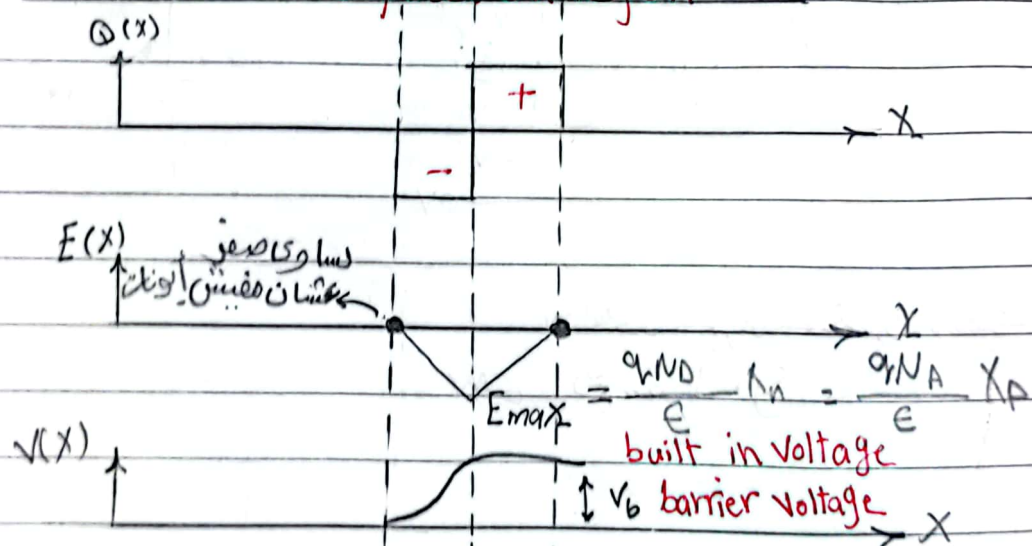 Q(X)
+
X
-
E(X)
يساوى صفر
عشان مفيش أيونات
X
Emax = qND/ϵ Xn = qNA/ϵ XP
V(X)
built in voltage
Vb barrier voltage
X